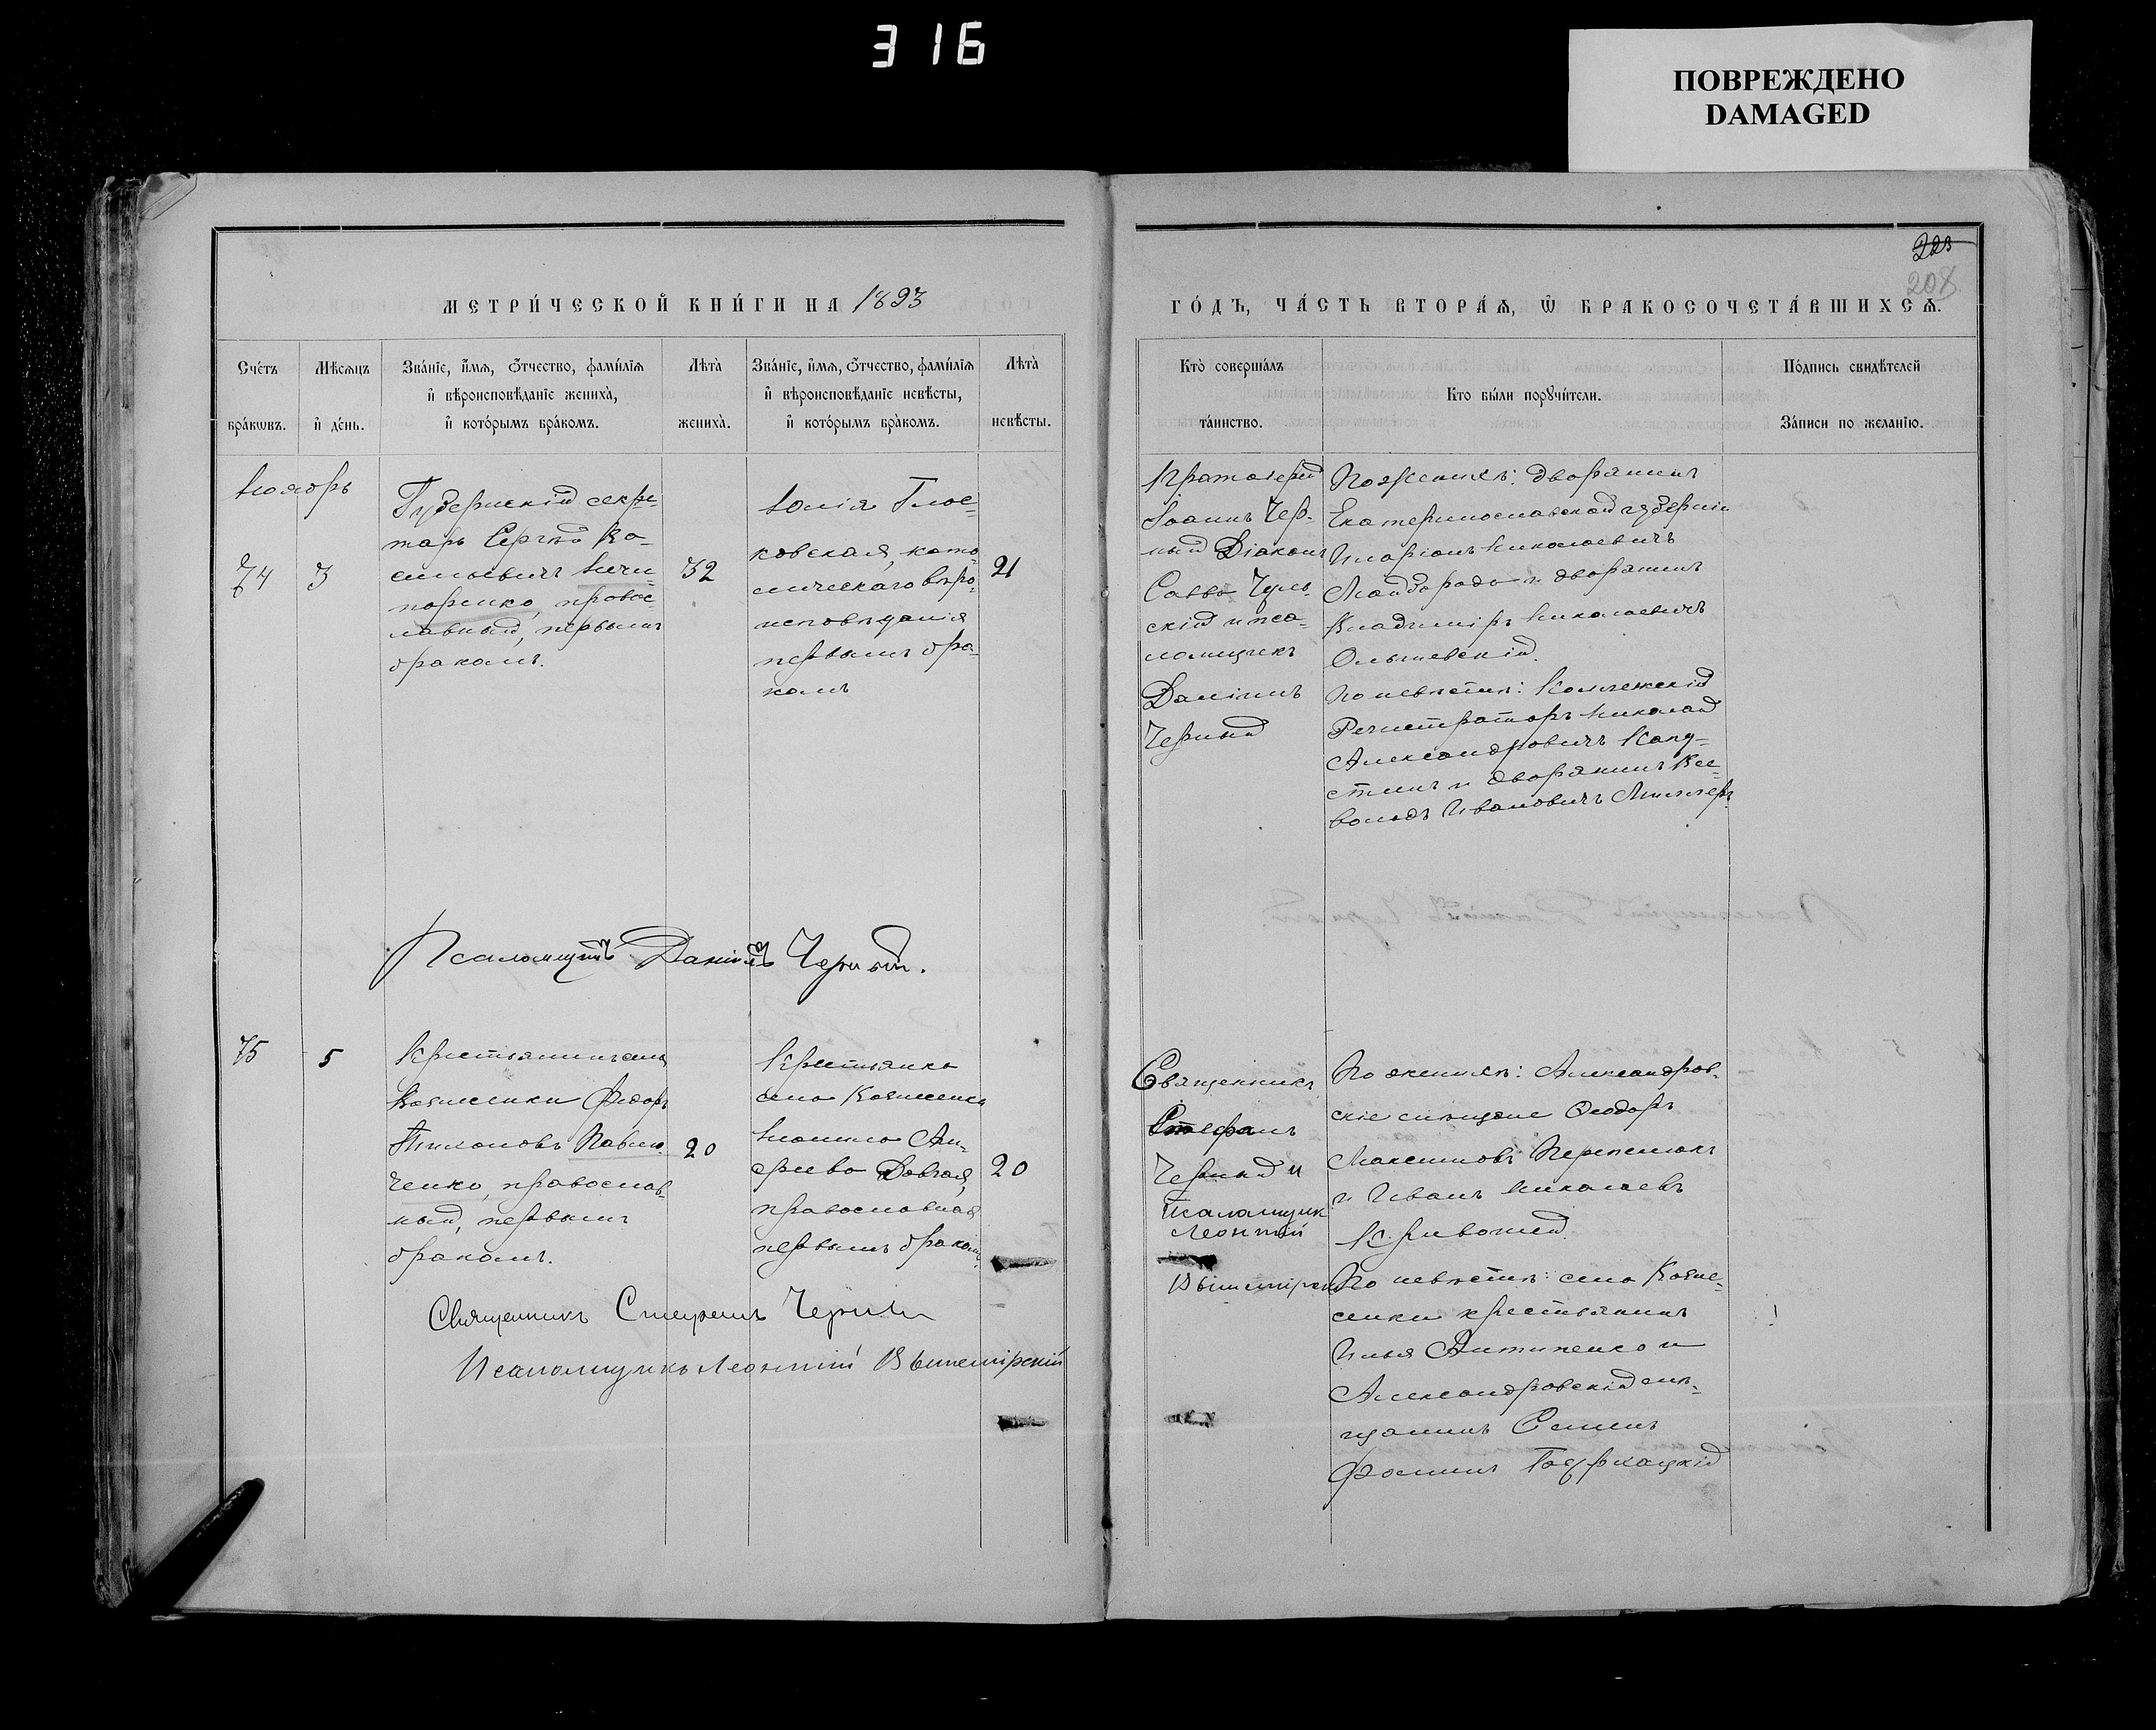 316
ПОВРЕЖДЕНО
DAMAGED
223
208
МЕТРИ́ЧЕСКОЙ КНИ́ГИ НА 1893
ГО́ДЪ, ЧА́СТЬ ВТОРА́Ѧ, Ѿ БРАКОСОЧЕТА́ВШИХСѦ.
Сче́тъ
бра́кѡвъ.
Мѣ́сѧцъ
и҆ де́нь.
Зва́нїе, и҆́мѧ, ѻ҆́тчество, фами́лїѧ
и҆ вѣроисповѣ́данїе жениха̀,
и҆ кото́рымъ бра́комъ.
Лѣ́та
жениха̀.
Зва́нїе, и҆́мѧ, ѻ҆́тчество, фами́лїѧ
и҆ вѣроисповѣ́данїе невѣ́сты,
и҆ кото́рымъ бра́комъ.
Лѣ́та
невѣ́сты.
Кто̀ соверша́лъ
та́инство.
Кто бы́ли порꙋчи́тели.
По́дпись свидѣ́телей
За́писи по жела́нїю.
Ноябрь
74
3
Губернскій секре-
тарь Сергѣй Ва-
сильевичъ Ничи-
поренко, правос-
лавный, первымъ
бракомъ.
32
Юлія Глос-
ковская, като-
лическаго вѣро-
исповѣданія
первымъ бра-
комъ
21
Протоіерей
Іоаннъ Чер-
ный Діаконъ
Савва Чуль-
скій и пса-
ломщикъ
Даніилъ
Черный
По женихѣ: дворянинъ
Екатеринославской губерніи
Иларіонъ Николаевичъ
и дворянинъ
Владиміръ Николаевичъ
Ольшевскій.
По невѣстѣ: Коллежскій
Регистраторъ Николай
Александровичъ Капу-
стинъ и дворянинъ Все-
володъ Ивановичъ Миллеръ.
Псаломщикъ Даніилъ Черный.
75
5
Крестьянинъ села
Вознесенки Ѳедоръ
Тихоновъ Павлю-
ченко, православ-
ный, первымъ
бракомъ.
20
Крестьянка
села Вознесенки
Ан-
дреева Довгая,
православная
первымъ бракомъ.
20
Священникъ
Стефанъ
Черный и
Псаломщик
Леонтій
Вышемірскій
По женихѣ: Александров-
скіе мѣщане Ѳеодоръ
Максимовъ Перепелюкъ
и Иванъ Николаевъ
Кривошей.
По невѣстѣ: села Возне-
сенки крестьянинъ
Илья Антипенко и
Александровскій мѣ-
щанинъ Семенъ
Священникъ Стефанъ Черный
Псаломщикъ Леонтій Вышемірскій